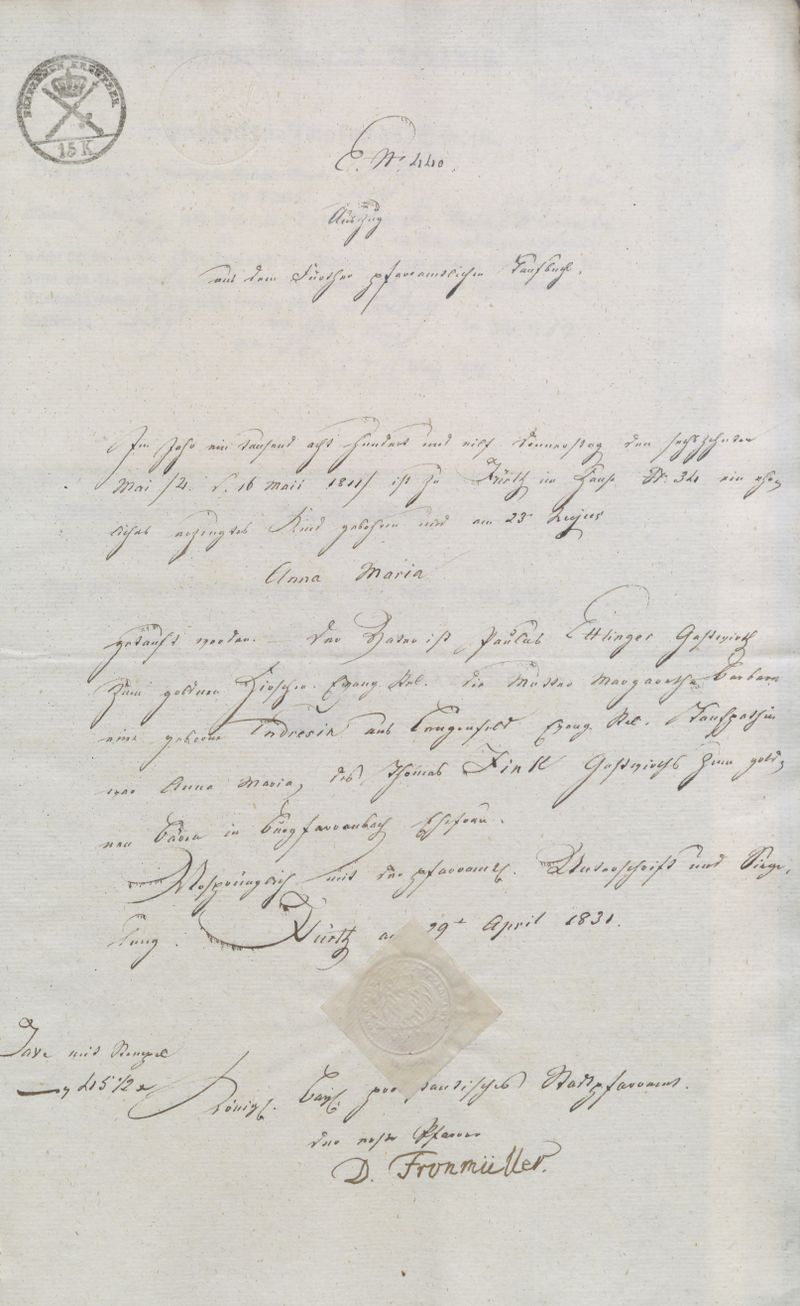 FÜNFZEHEN KREUTZER
15 K
E. Nr. 440.
Auszug
aus dem Fürther pfarramtlichen Taufbuch.
Im Jahr ein tausend acht hundert und eilf Donnerstag den sechszehnten
Mai /: d. 16 Maii 1811/ ist zu Fürth im Hause Nr. 34 ein ehe-
liches erzeugtes Kind gebohren und am 23 hujus
Anna Maria
getauft worden. Der Vater ist Paulus Ettlinger Gastwirth
zum goldnen Hirschen. Evang. Rel. die Mutter Margaretha Barbara
eine geborne Endresin aus Langenfeld Evang. Rel. Taufpathin
war Anna Maria, des Thomas Fink Gastwirths zum gold-
nen Bären in Burgfarrnbach Ehefrau.
Urspünglich mit der pfarramtl. Unterschrift und Siege-
lung. Fürth am 29t April 1831.
Taxe mit Stempel
45 1/2 x
Königl. Bayl. protestantisches Stadtpfarramt.
der erste Pfarrer
D. Fronmüller.